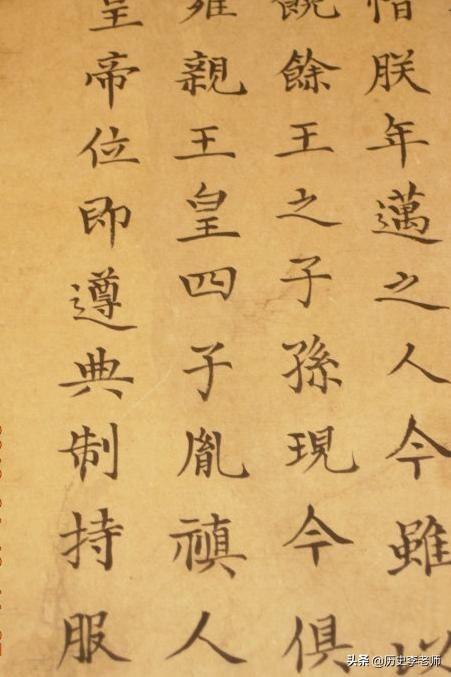 惜朕年邁之人今雖以
饒餘王之子孫現今俱
雍親王皇四子胤禛人
皇帝位即遵典制持服
头条 @历史李老师